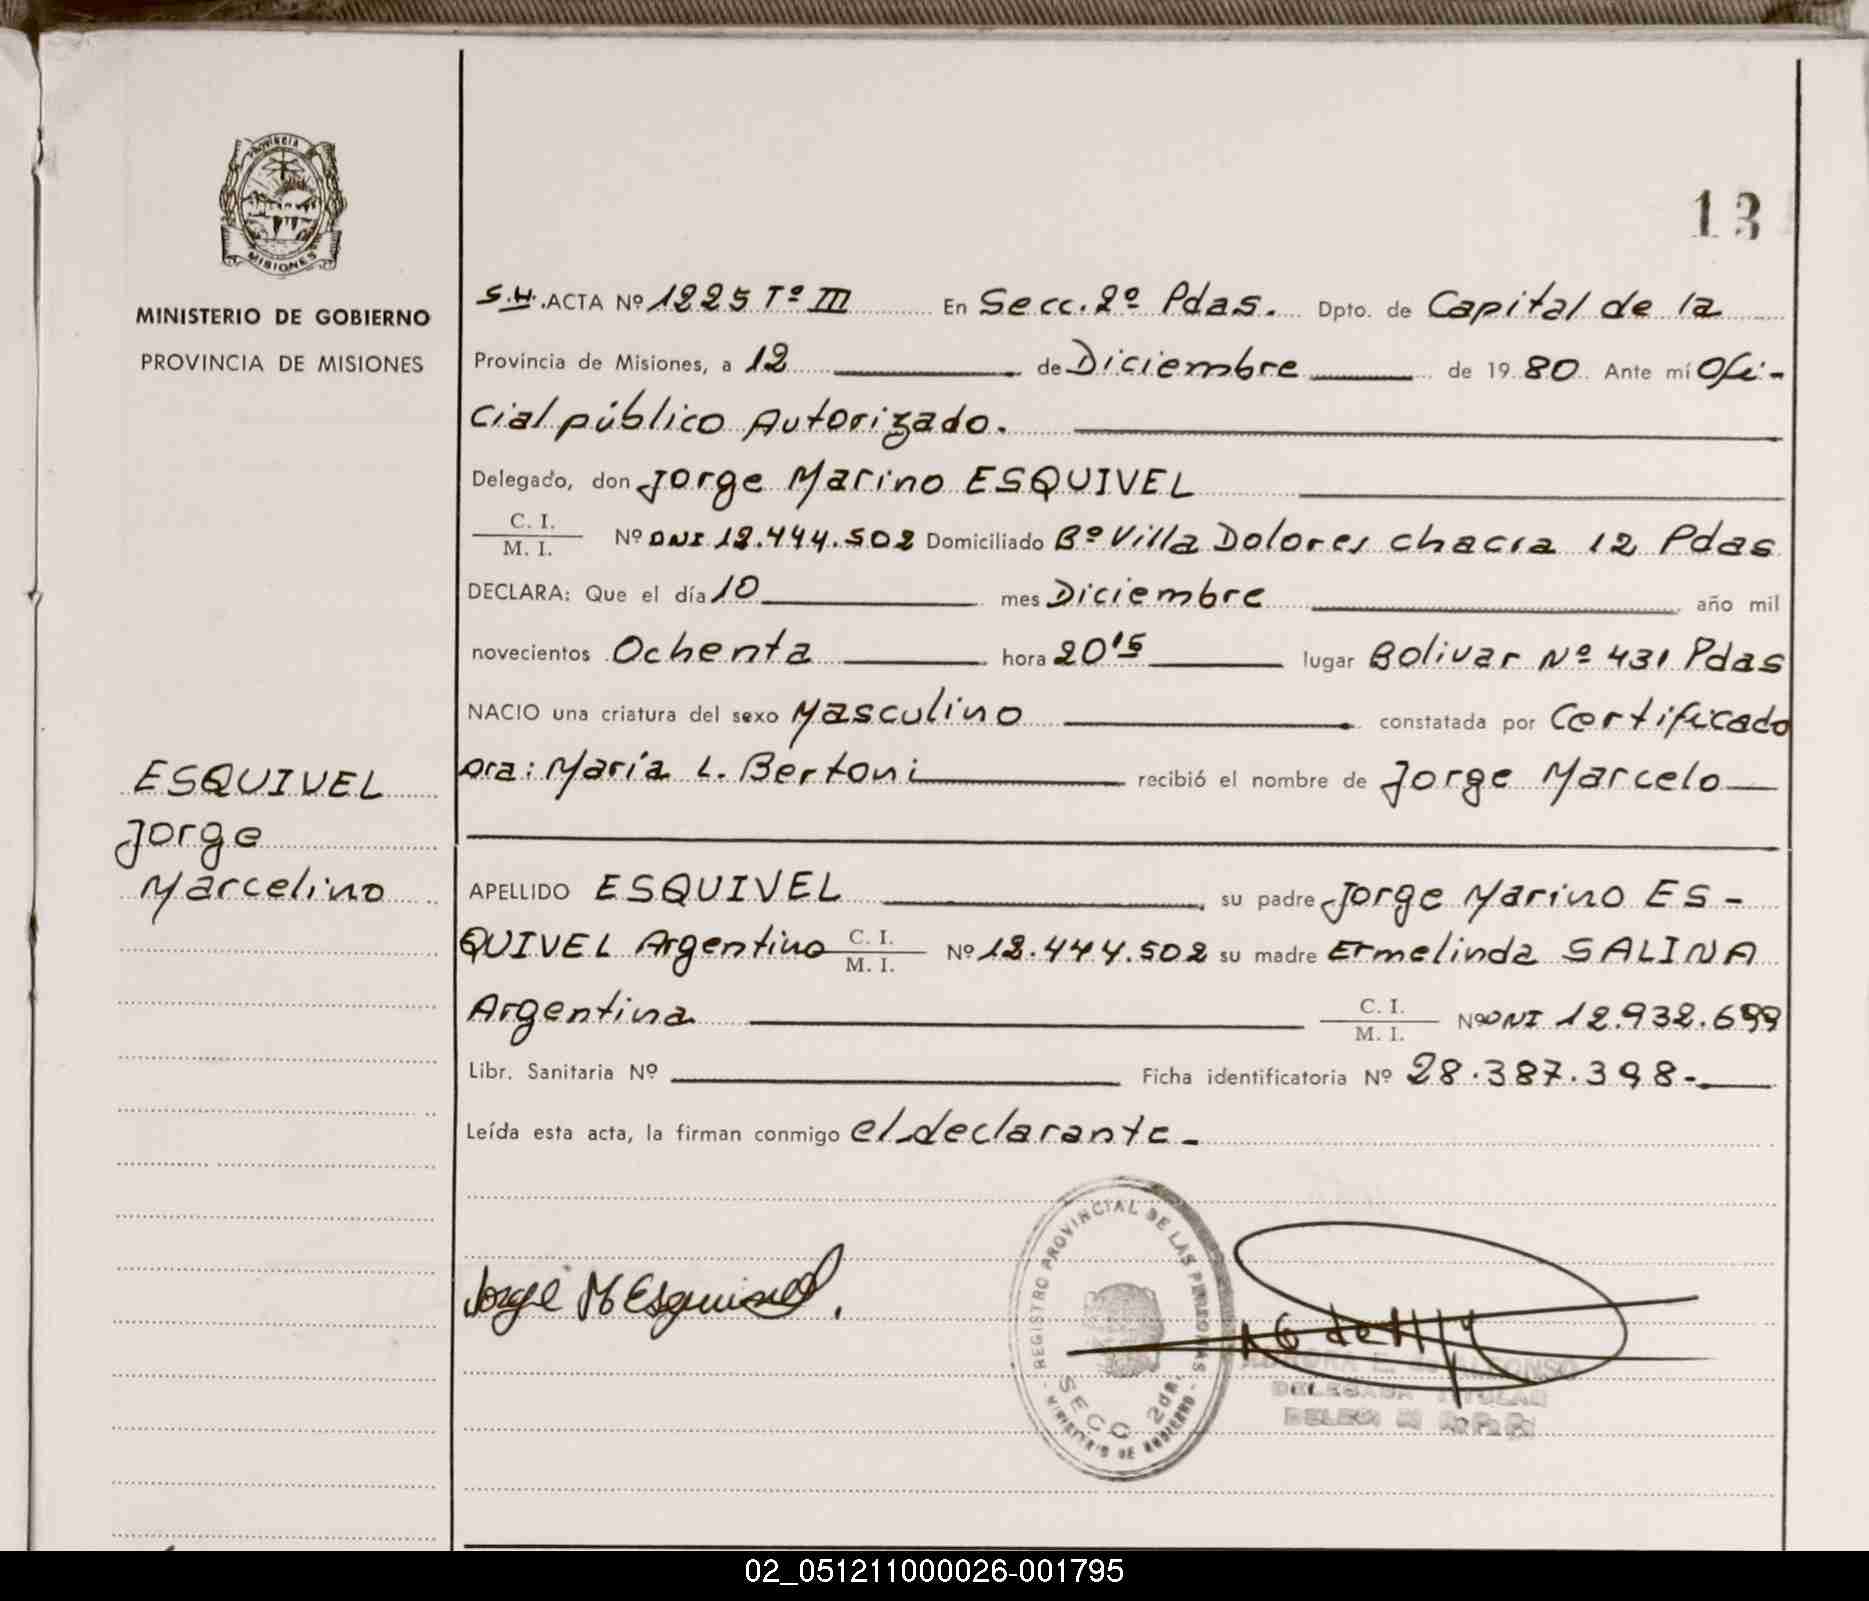 Provincia
MISIONES
MINISTERIO DE GOBIERNO
PROVINCIA DE MISIONES
13
S.H. ACTA Nº 1225 Tº III En Secc. 2º Pdas. Dpto. de Capital de la
Provincia de Misiones, a 12 de Diciembre de 19 80 Ante mí Ofi-
cial público Autorizado.
Delegado, don Jorge Marino ESQUIVEL
C. I.
M. I. Nº DNI 12.444.502 Domiciliado Bº Villa Dolores chacra 12 Pdas
DECLARA: Que el día 10 mes Diciembre año mil
novecientos Ochenta hora 20'15 lugar Bolivar Nº 431 Pdas
NACIO una criatura del sexo Masculino constatada por Certificado
Dra: María L. Bertoni recibió el nombre de Jorge Marcelo
ESQUIVEL
Jorge
Marcelino
APELLIDO ESQUIVEL su padre Jorge Marino ES-
QUIVEL Argentino C. I. M. I. Nº 12.444.502 su madre Ermelinda SALINA
Argentina C. I. M. I. Nº DNI 12.932.699
Libr. Sanitaria Nº Ficha identificatoria Nº 28.387.398.-
Leída esta acta, la firman conmigo el declarante.-
Jorge M Esquivel.
REGISTRO PROVINCIAL DE LAS PERSONAS
SECC. 2da.
- MINISTERIO DE GOBIERNO -
E. de ALFONSO
DELEGADA TITULAR
02_051211000026-001795